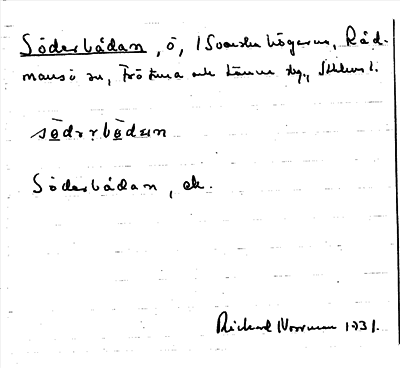 Söderbådan, ö, i Svenska högarna, Råd-
mansö sn, Frötuna och Länna skg., Sthlms l.
södǝrbådan
Söderbådan, ek.
Richard Norrman 1931.